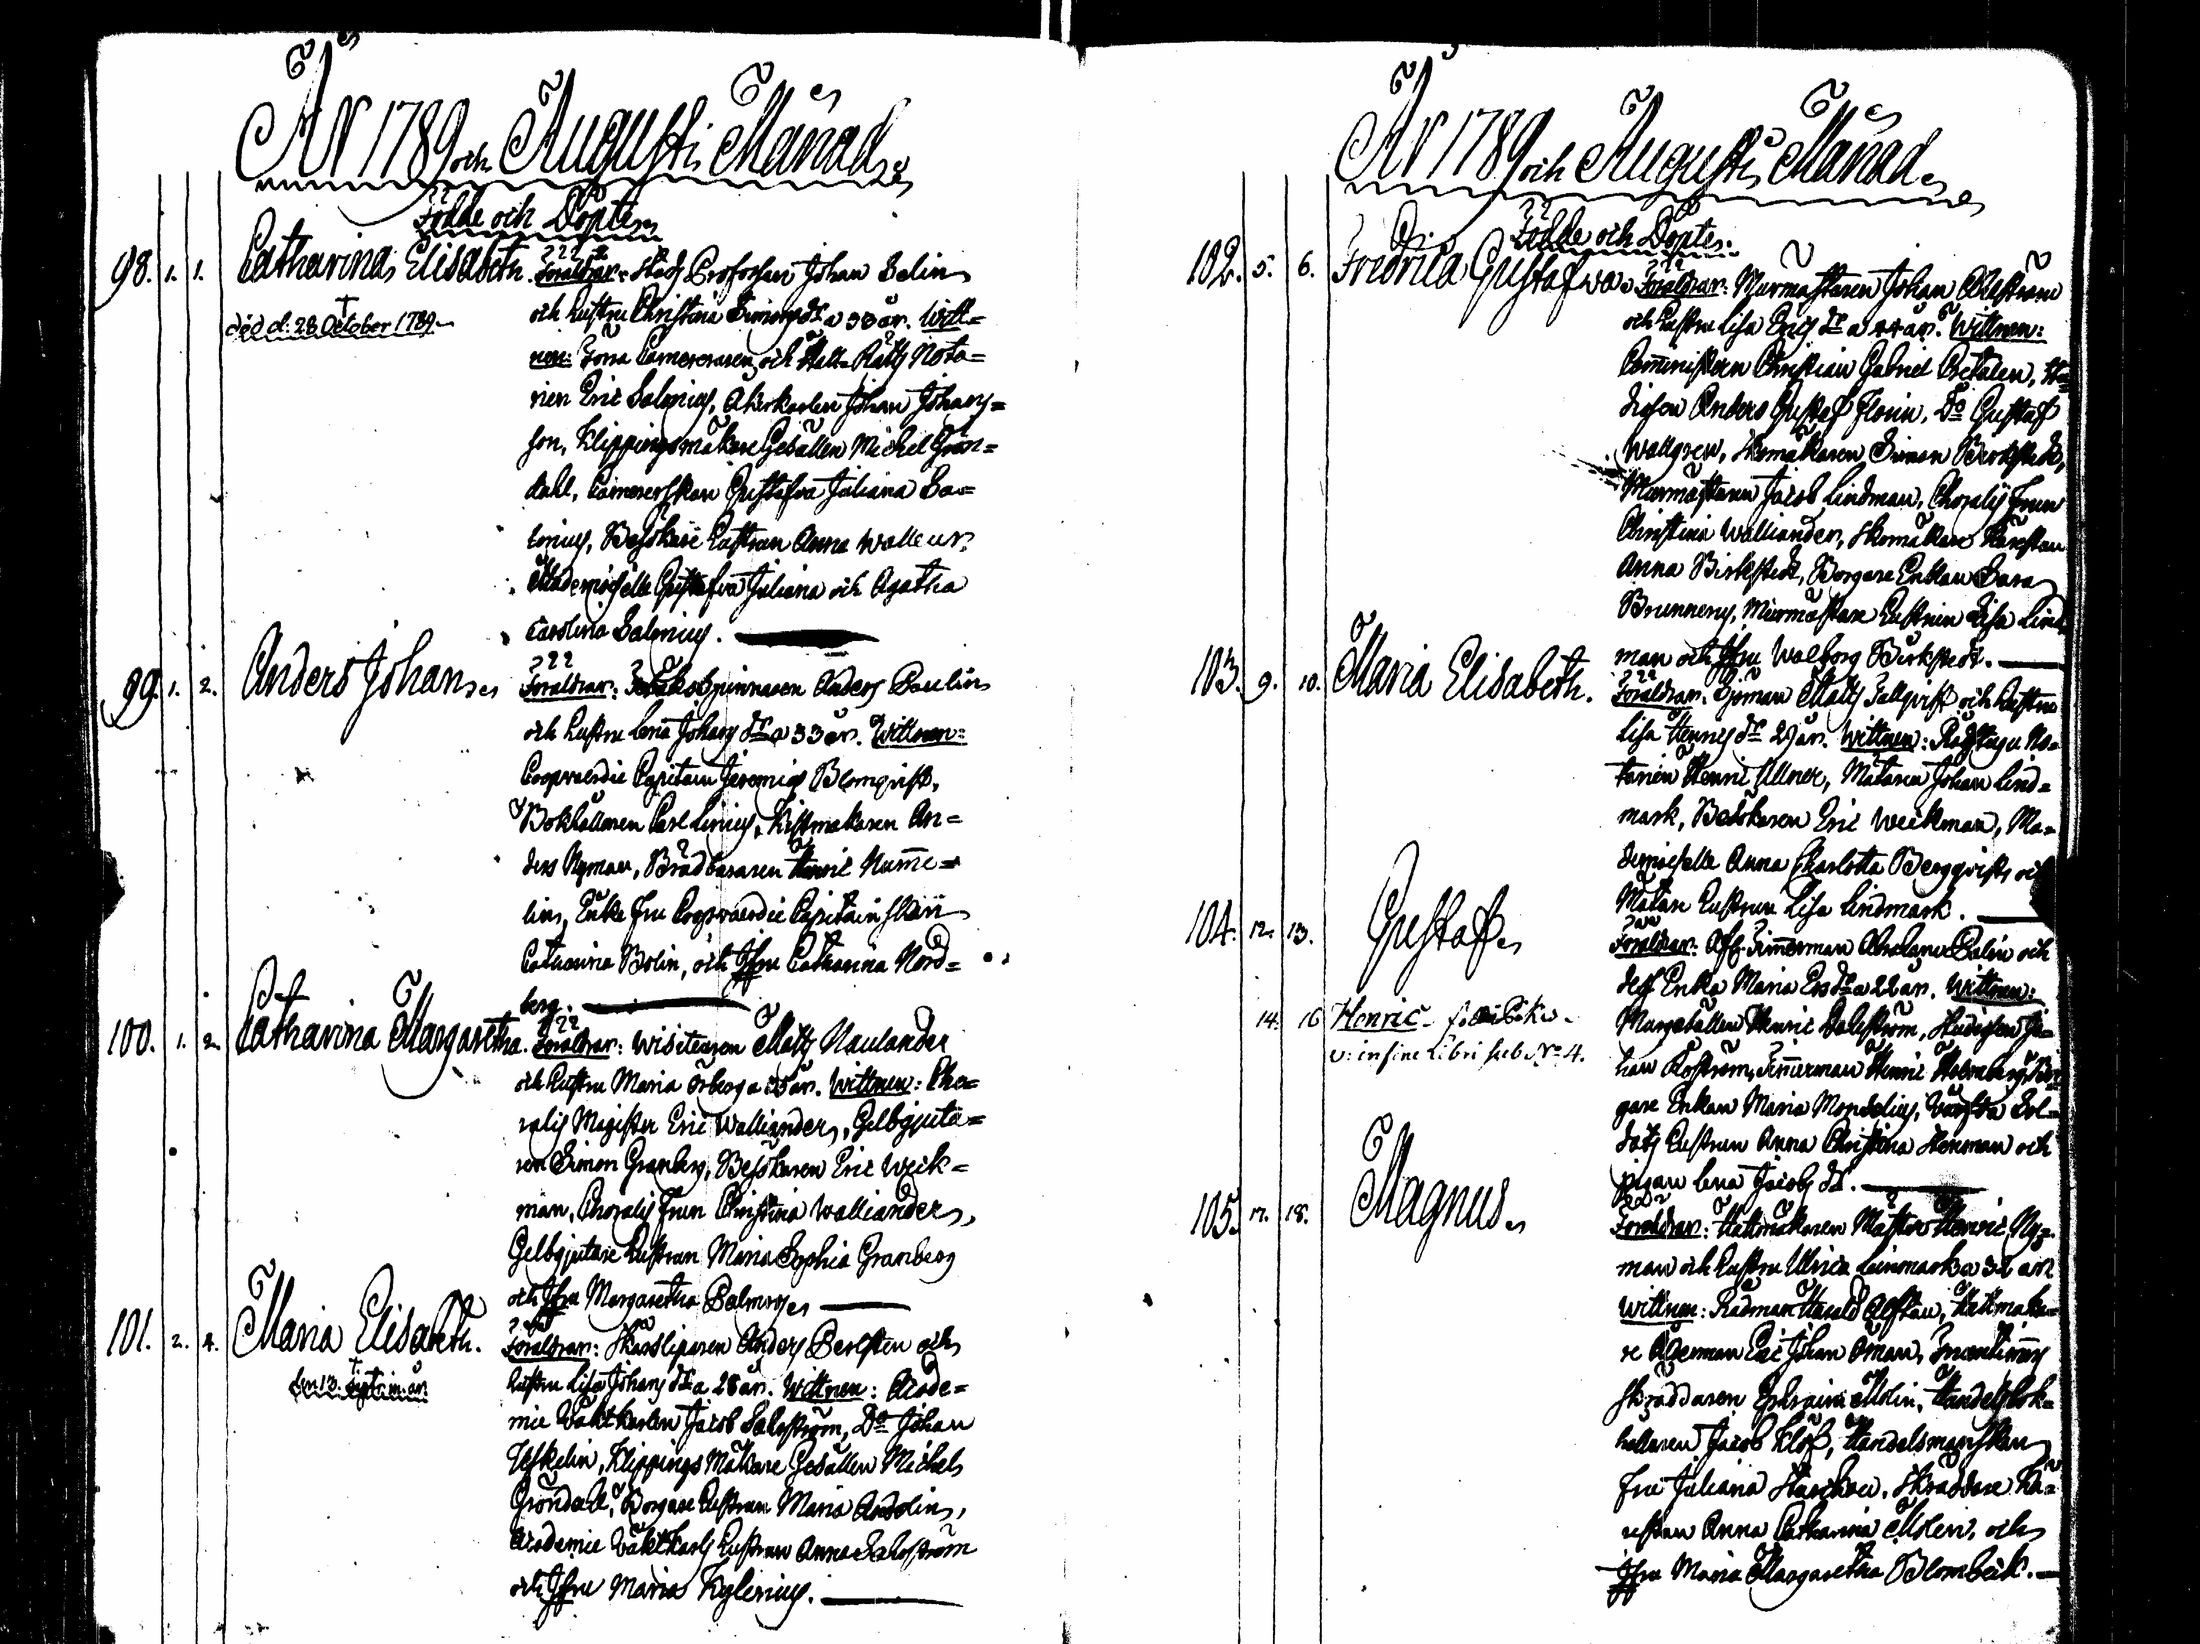 År 1789 och Augusti Månad.
Födde och Döpte.
98. 1. 1. Catharina Elisabeth. Föräldrar: Stads Profossen Johan Selin
och hustru Christina Simonsdr a 38 år. Witt=
död d. 28 October 1789.
nen: Förra Camereraren och Rätts Nota=
rien Eric Salonius, Åkerkarlen Johan Johans=
son, Klippingsmakare Gesällen Michel Grön=
dahl, Camererskan Gustafva Juliana Sa=
lonius, Besökare Hustrun Anna
Mademoiselle Gustafva Juliana och Agatha
Carolina Salonius.
99. 1. 2. Anders Johan.
Föräldrar: Tobaksspinnaren Anders Paulin
och hustru Lena Johansdr a 33 år. Wittnen:
Coopvaerdie Capitain Jeremias Blomqvist,
Bokhållaren Carl Linius, Kistmakaren An=
ders Nyman, Brädbäraren Henric Numme=
lin, Enke Fru Coopvaerdie Capitainskan
Catharina Bolin, och Jfru Catharina Nord=
berg.
100. 1. 2. Catharina Margaretha. Föräldrar: Wisiteuren Matts Naulander
och hustru Maria Örberg a 35 år. Wittnen: Cho=
ralis Magister Eric Walliander, Gelbgjuta=
ren Simon Granberg, Besökaren Eric Weck=
man, Choralis Frun Christina Walliander,
Gelbgjutare hustrun Maria Sophia Granberg
och Jfru Margaretha Palmros
101. 2. 4. Maria Elisabeth.
Föräldrar: Skärsliparen Anders Berlsten och
hustru Lisa Johansdr a 28 år. Wittnen: Acade=
mie Vaktkarlen Jacob Sahlström, Do Johan
Eskelin, Klippings Makare Gesällen Michel
Gröndahl, Borgare hustrun Maria Andolin,
Academie Vaktkarls hustrun Anna Sahlström
och Jfru Maria Kylenius.
År 1789 och Augusti Månad.
Födde och Döpte.
102. 5. 6. Fredrica Gustafva. Föräldrar: Murmästaren Johan Ahlström
och hustru Lisa Ericsdr a 44 år. Wittnen:
Comministern Christian Gabriel Cretalen, Stu=
diosen Anders Gustaf Florin, Do Gustaf
Wallgren, Skomakaren Simon Birkstedt,
Murmästaren Jacob Lindman, Choralis Frun
Christina Walliander, Skomakare Kärestan
Anna Birkstedt, Borgare Enkan Sara
Brunnerus, Murmästare hustrun Lisa Lind
man och Jfru Walborg Birkstedt.
103. 9. 10. Maria Elisabeth.
Föräldrar: Sjöman Matts Fallqvist och hustru
Lisa Hennesdr 29 år. Wittnen: Rådstugu No=
tarien Henric Ullner, Mätaren Johan Lind=
mark, Besökaren Eric Weckman, Ma=
demoiselle Anna Charlotta Bergqvist, och
Mätare hustrun Lisa Lindmark.
104. 12. 13. Gustaf.
Föräldrar: Afl. Timmerman Abraham Salin och
dess Enka Maria Ersdr a 22 år. Wittnen:
14. 16 Henric
v: in fine Libri sub No 4.
Murgesällen Henric Dalström, Studiosen Jo=
han Roström, Timmerman Henric Holmberg, Bor
gare Enkan Maria Mondelius, Sol=
dats hustrun Anna Christina Stenman och
pigan Lena Jacobsdr.
105. 17. 18. Magnus.
Föräldrar: Hattmakaren Mäster Henric Ny=
man och hustru Ulrica Lunmark a 32 år.
Wittnen: Rådman Harald Alftan, Hattmaka=
re Ålderman Eric Johan Öman,
skräddaren Ephraim Molin, Handelsbok=
hållaren Jacob Klöf, Handelsmanskan
Fru Juliana Skräddare Kä=
restan Anna Catharina Molin, och
Jfru Maria Margaretha Blombeck.